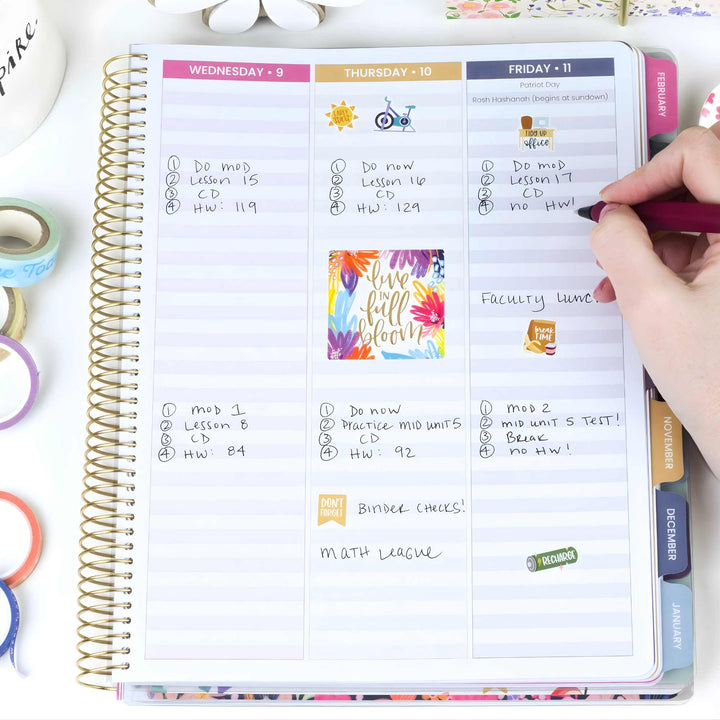 WEDNESDAY • 9
① Do mod
② Lesson 15
③ CD
④ HW: 119
① mod 1
② Lesson 8
③ CD
④ HW: 84
THURSDAY • 10
① Do now
② Lesson 16
③ CD
④ HW: 129
live
IN
full
bloom
① Do now
② Practice mid unit 5
③ CD
④ HW: 92
DON'T
FORGET
Binder Checks!
Math League
FRIDAY • 11
Patriot Day
Rosh Hashanah (begins at sundown)
TIDY UP
office
① Do mod
② Lesson 17
③ CD
④ no HW!
Faculty Lunc
break
TIME
① mod 2
② mid unit 5 Test!
③ Break
④ no HW!
RECHARGE
FEBRUARY
NOVEMBER
DECEMBER
JANUARY